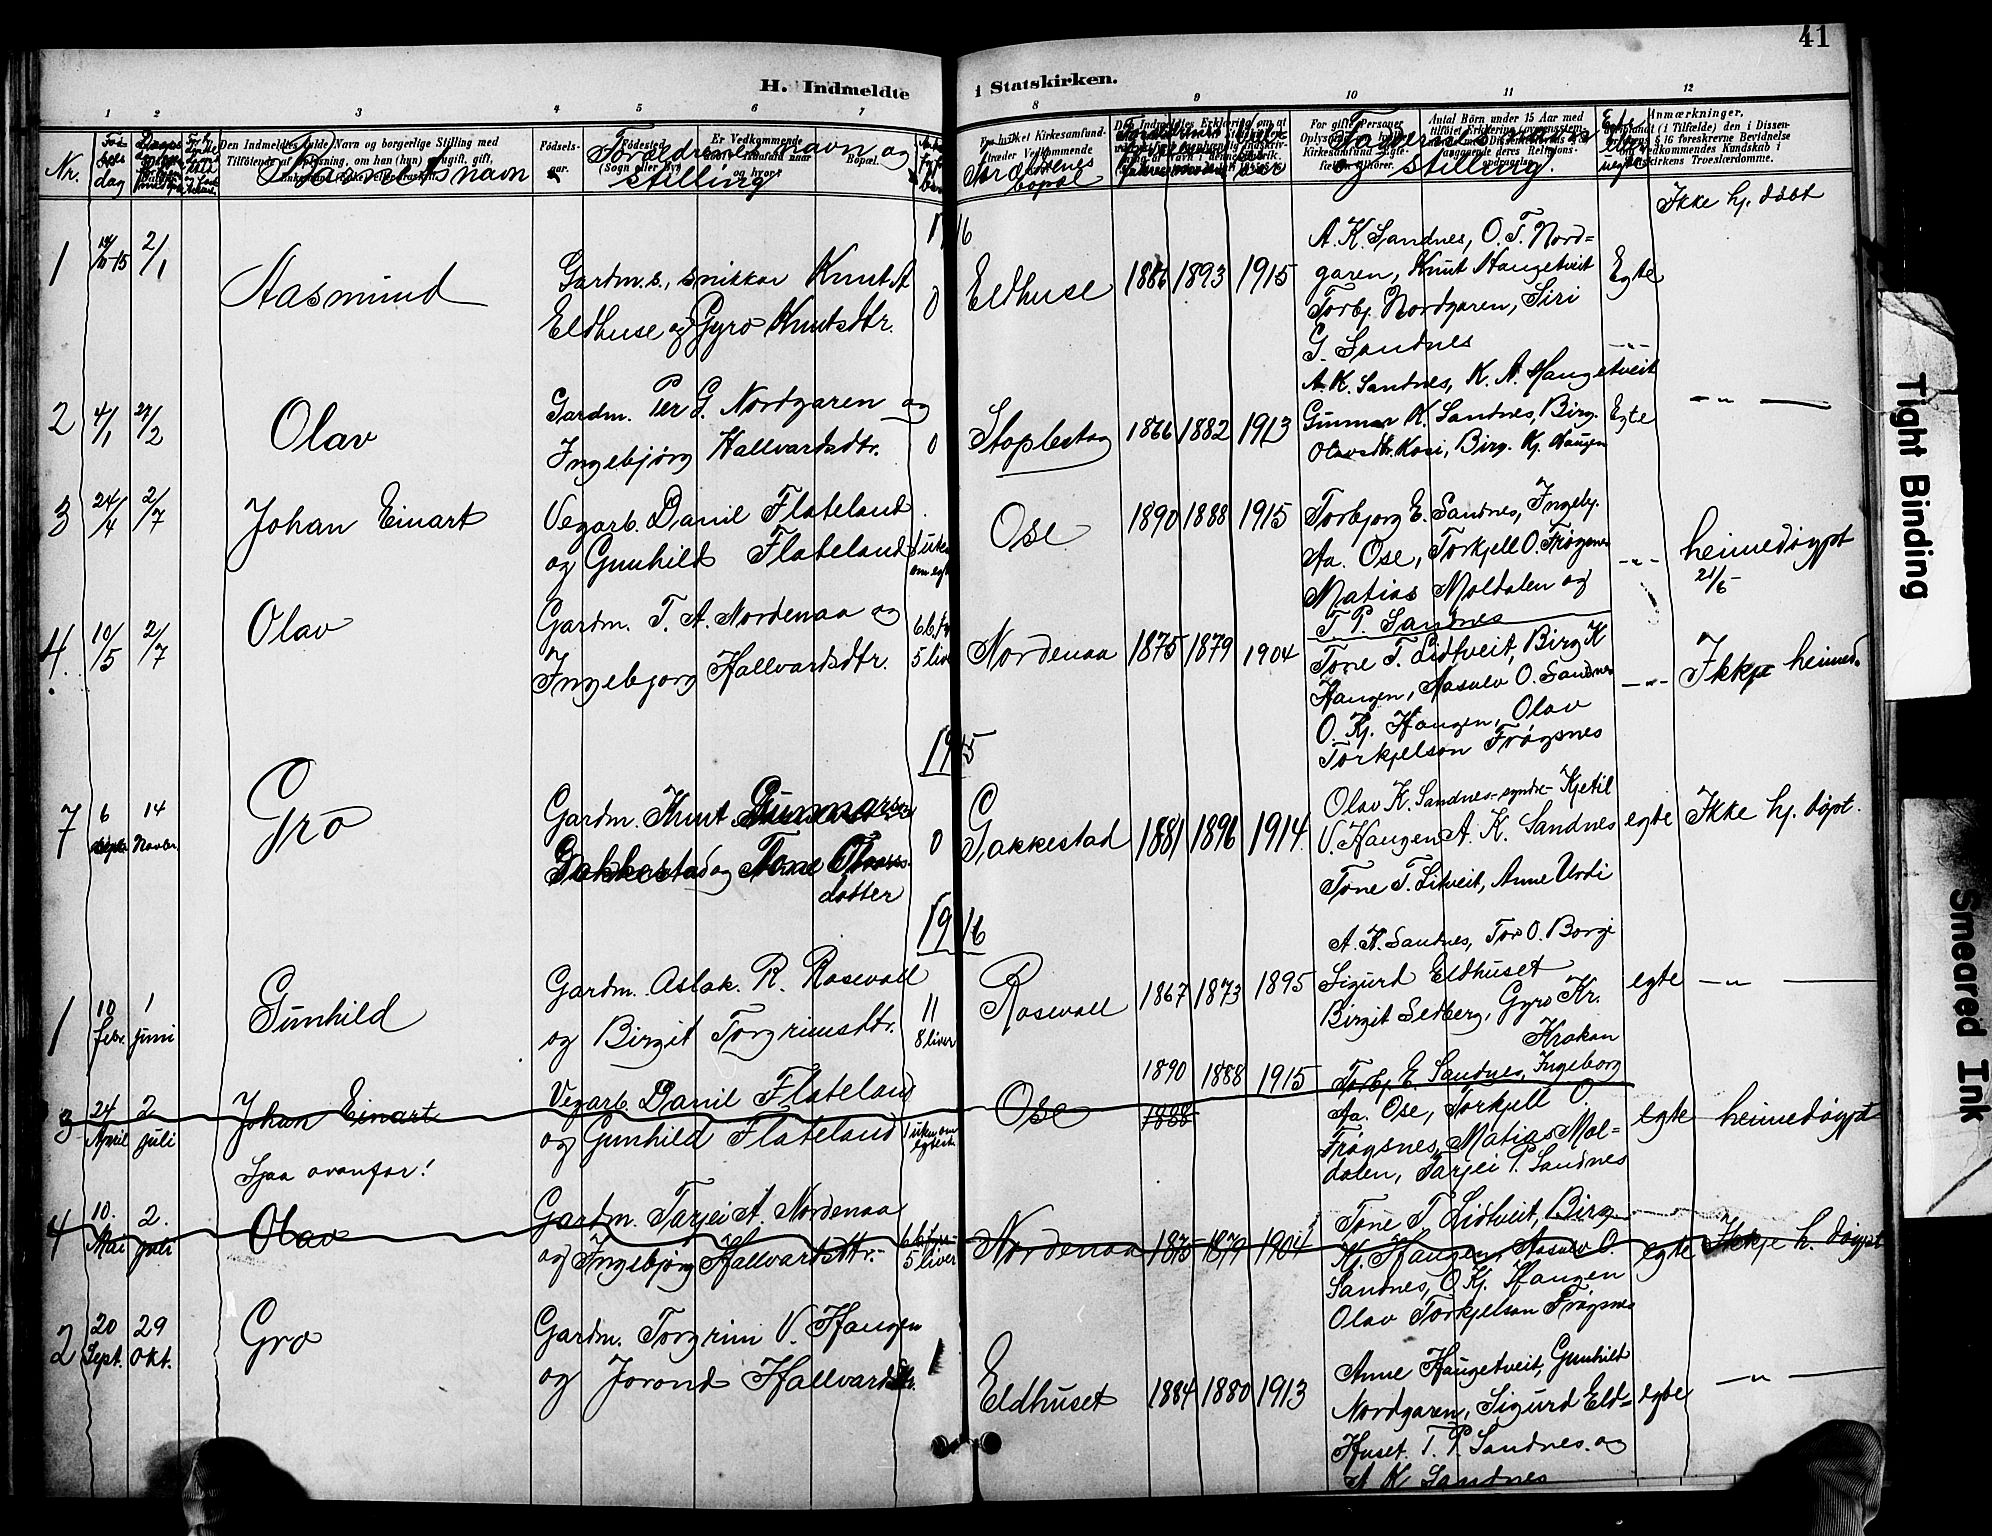 41
H. Indmeldte i Statskirken.
1 2 3 4 5 6 7 8 9 10 11 12
Nr.
Den Indmeldtes fulde Navn og borgerlige Stilling med
Barnets navn
Fødsels-
Fødested
(Sogn eller By)
Er Vedkommende
Bopæl.
Forældrenes navn og
stilling
bopæl
Faddernes navn
og stilling.
Antal Børn under 15 Aar med
Anmærkninger,
(i Tilfælde) den i Dissen-
§ 16 foreskrevne Bevidnelse
Vedkommendes Kundskab i
kirkens Troeslærdomme.
Ikke hj. døbt
1916
1
2/1
Aasmund
Gardm.s., snikkar Knut A
Eldhuse og Gyro Knutsdtr.
0
Eldhuse
1886 1893 1915
A. K. Sandnes, O. T. Nord=
garen, Knut Haugetveit
Torbj. Nordgaren, Siri
G. Sandnes
Egte
2
4/1
27/2
Olav
Gardm. Per G. Nordgaren og
Ingebjørg Hallvardsdtr.
0
Stoplestog
1866 1882 1913
A. K. Sandnes, K. A. Haugetveit
Gunnar K. Sandnes, Birg.
Olavsdtr. Kosi, Birg. Kj. Haugen
Egte
- " -
3
24/4
2/7
Johan Einart
Vegarb. Danil Flateland
og Gunhild Flateland
Ose
1890 1888 1915
Torbjørg E. Sandnes, Ingebj.
Aa. Ose, Torkjell O. Frøgsnes
Matias Moldalen og
T. P. Sandnes
- " -
heimedøypt
21/5-
4.
10/5
2/7
Olav
Gardm. T. A. Nordenaa og
Ingebjørg Hallvardsdtr.
5 liv
Nordenaa
1875 1879 1904
Tone T. Lidtveit, Birg K
Haugen, Aasulv O. Sandnes
O. Kj. Haugen, Olav
Torkjelson Frøgsnes
- " -
Ikkje heimed.
1915
7
6
14
Novbr.
Gro
Gardm. Knut Gunnarson
Gakkestad og Tone Olavs
dotter
0
Gakkestad
1881 1896 1914
Olav K. Sandnes-syndre- Kjetil
V. Haugen A. K. Sandnes
Tone T. Litveit, Anne Urdi
egte
Ikke hj. døpt.
1916
1
10
febr.
1
juni
Gunhild
Gardm. Aslak. R. Rosevoll
og Birgit Torgrimsdtr.
11
8 liver
Rosevoll
1867 1873 1895
A. K. Sandnes, Tor O. Borgi
Sigurd Eldhuset
Birgit Sedberg, Gyro Kr.
Krokan
egte
- " -
3
24
April
2
juli
Johan Einart
Sjaa ovanfor!
Vegarb. Danil Flateland
og Gunhild Flateland
Ose
1890 1888 1915
1888
Torbj. E. Sandnes, Ingeborg
Aa. Ose, Torkjell O.
Frøgsnes, Matias Mol-
dalen, Tarjei P. Sandnes
egte
heimedøypt
4
10.
Mai
2.
juli
Olav
Gardm. Tarjei A. Nordenaa
og Ingebjørg Hallvardsdtr.
5 liver
Nordenaa
1875 1879 1904
Tone T Lidtveit, Birg.
Kj. Haugen, Aasulv O.
Sandnes, O. Kj. Haugen
Olav Torkjelson Frøgsnes
egte
Ikkje h. døypt
2
20
Sept.
29
Okt.
Gro
Gardm. Torgrim V. Haugen
og Jorond Hallvardsdtr.
1
Eldhuset
1884 1880 1913
Anne Haugetveit, Gunhild
Nordgaren, Sigurd Eld=
Huset. T. P. Sandnes. og
A K Sandnes
egte
- " -
Tight Binding
Smeared Ink